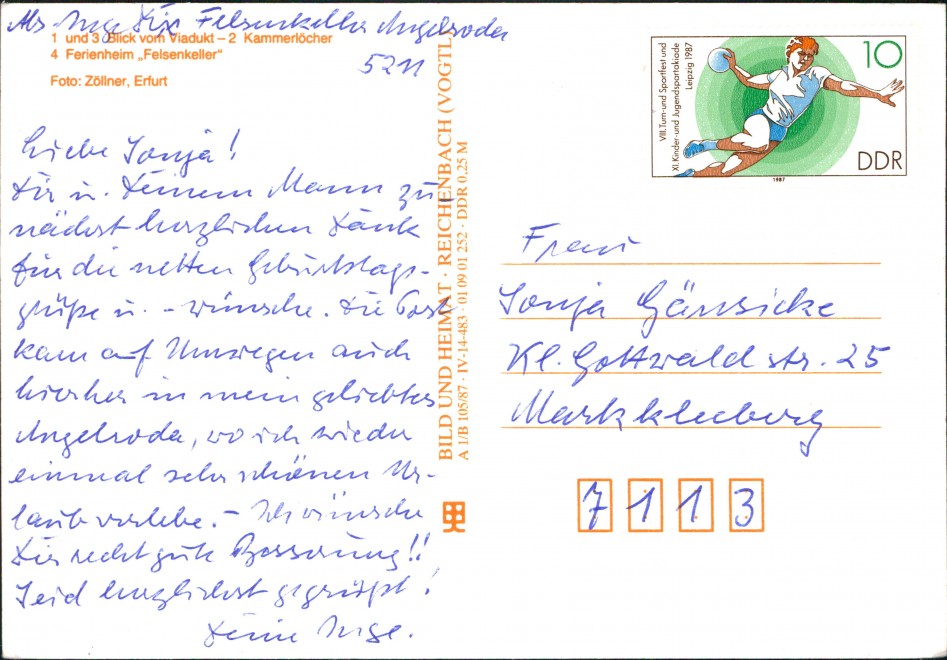 Abs. Inge Dix Felsenkeller Angelroda
5211
1 und 3 Blick vom Viadukt – 2 Kammerlöcher
4 Ferienheim „Felsenkeller“
Foto: Zöllner, Erfurt
Liebe Sonja!
Dir u. Deinem Mann zu-
nächst herzlichen Dank
für die netten Geburtstags-
grüße u. -wünsche. Die Post
kam auf Umwegen auch
hierher in mein geliebtes
Angelroda, wo ich wieder
einmal sehr schönen Ur-
laub verlebe. – Ich wünsche
Dir recht gute Besserung!!
Seid herzlichst gegrüßt!
Deine Inge.
BILD UND HEIMAT · REICHENBACH (VOGTL
A 1/B 105/87 · IV-14-483 · 01 09 01 252 · DDR 0,25 M
VIII. Turn- und Sportfest und
XI. Kinder- und Jugendspartakiade
Leipzig 1987
10
DDR
1987
Frau
Sonja Gänsicke
Kl. Gottwald str. 25
Markkleeberg
7113